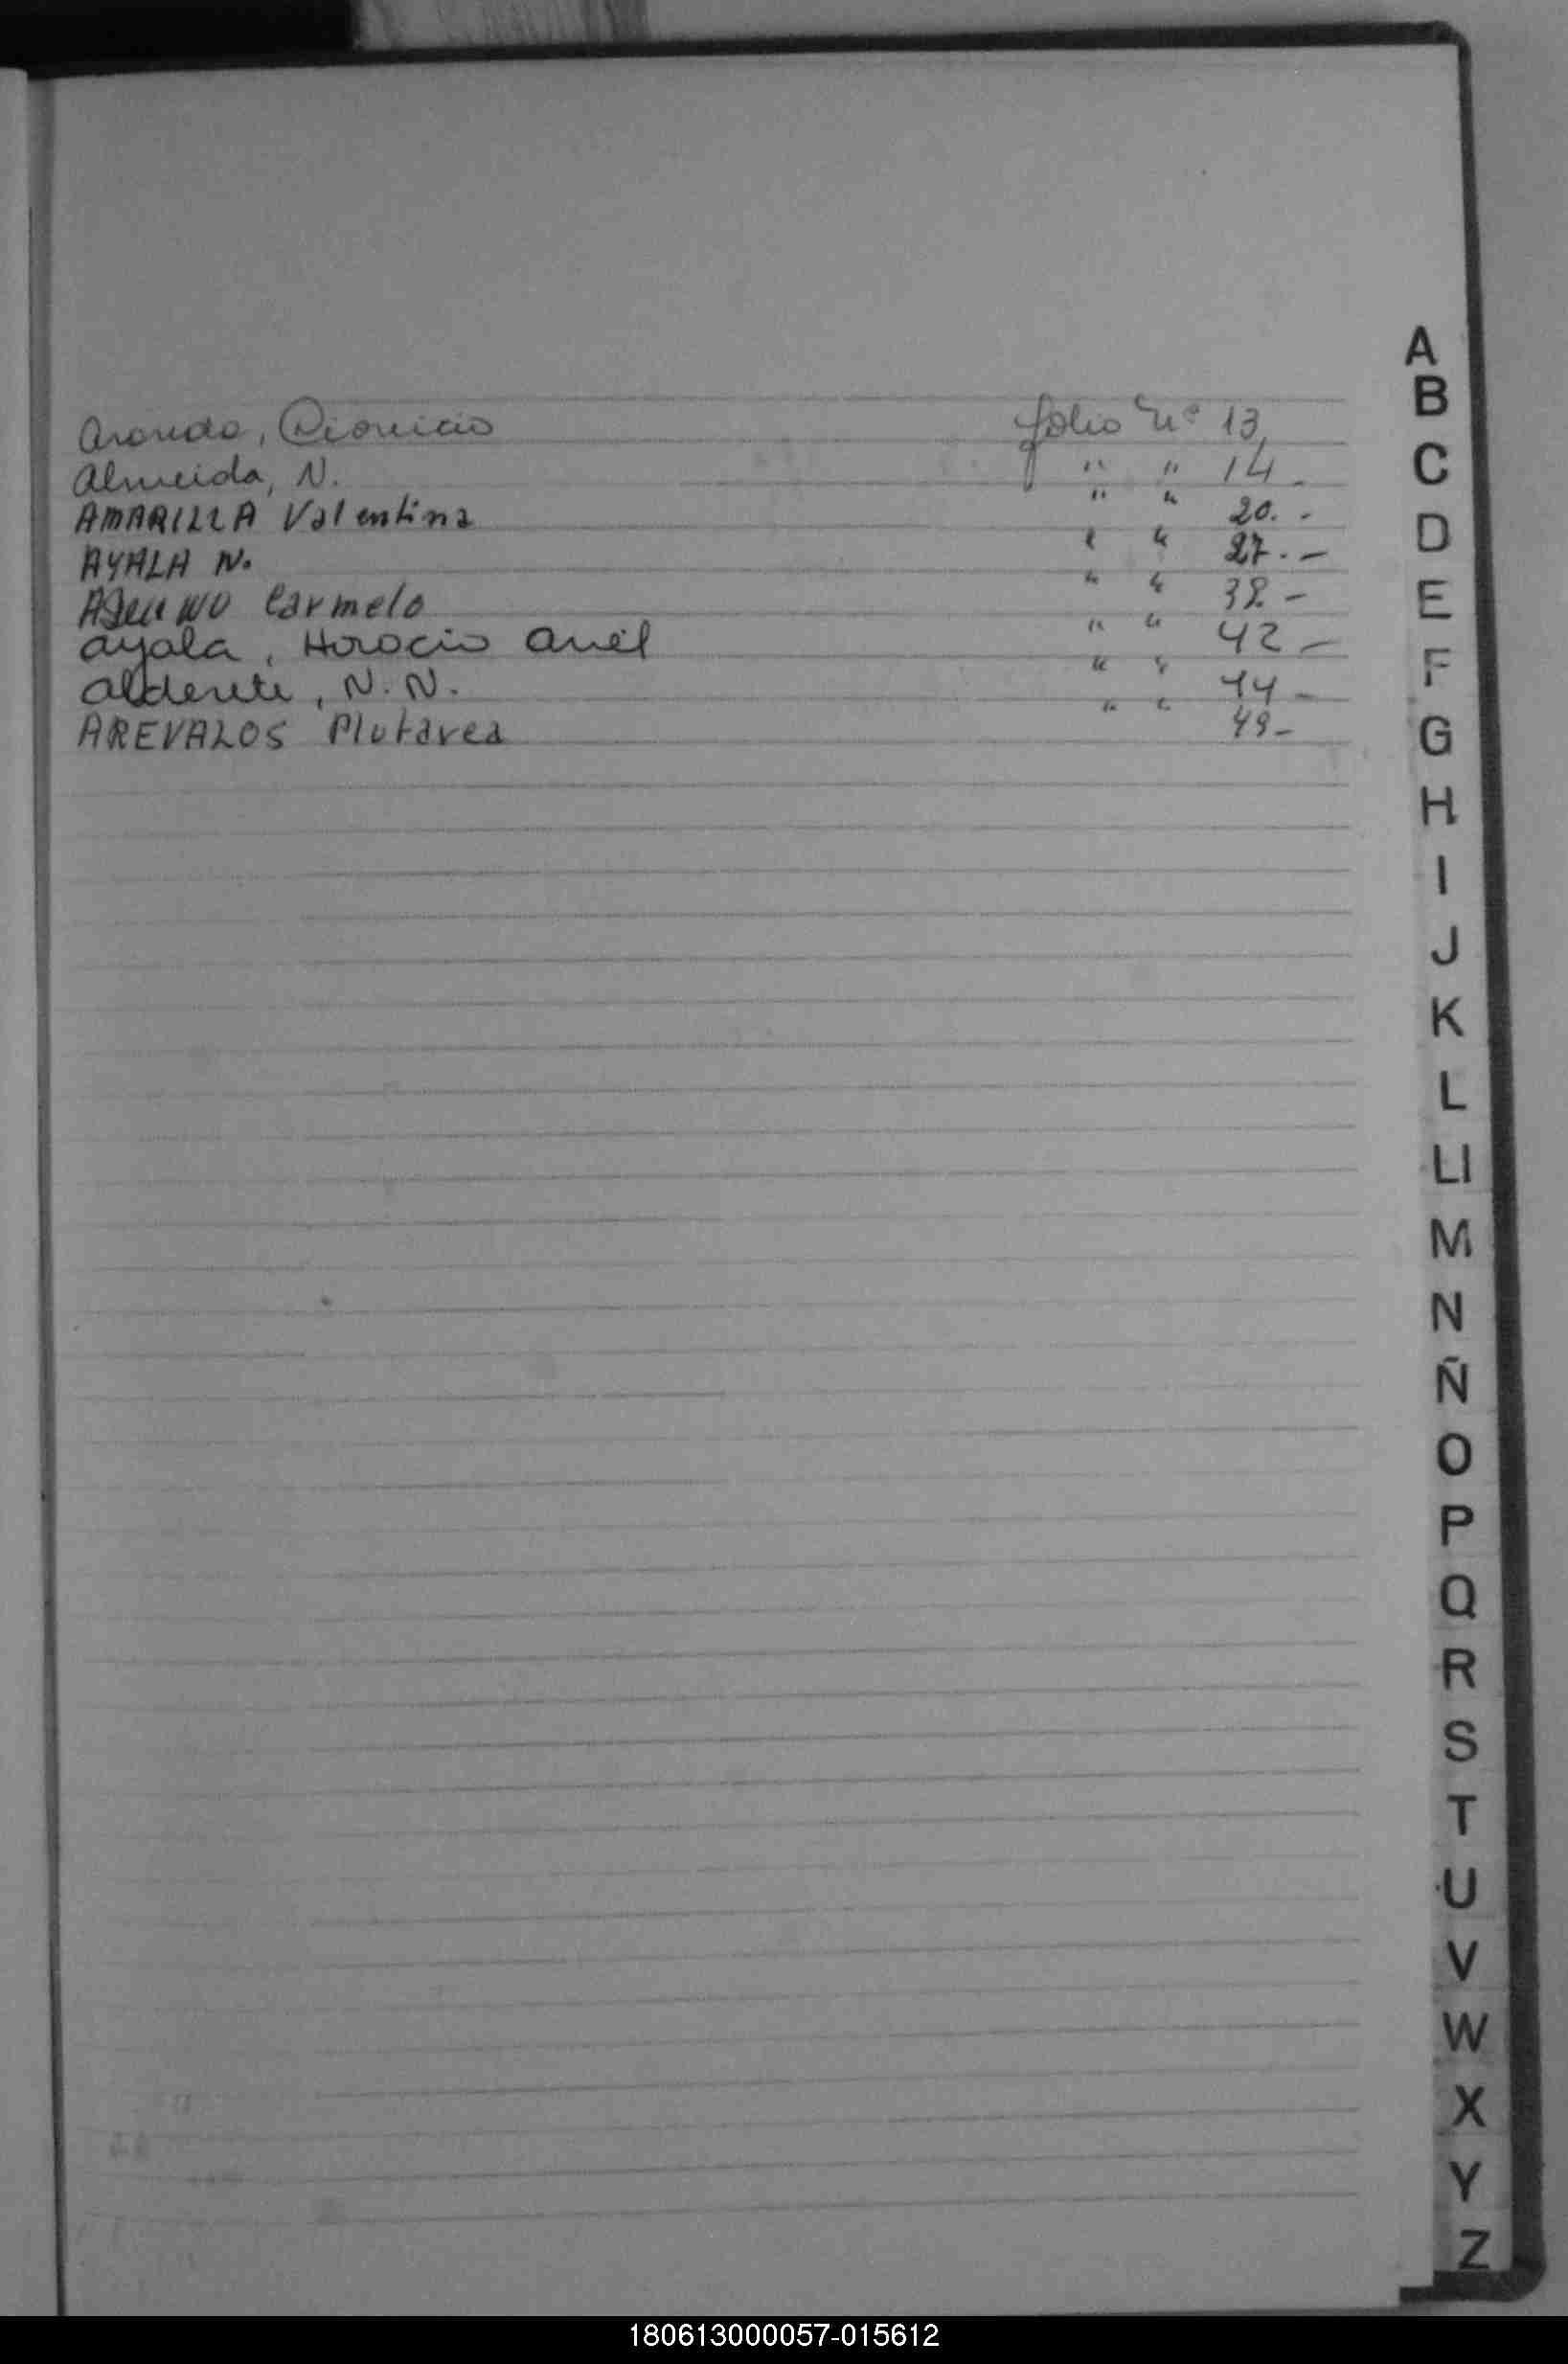 Aranda, Dionicio folio Nº 13,
Almeida, N. " " 14 -
AMARILLA Valentina " " 20. -
AYALA N. " " 27. -
Carmelo " " 38 -
Ayala, Horacio Ariel " " 42 -
Alderete, N. N. " " 44 -
AREVALOS Plutarca " " 49 -
A
B
C
D
E
F
G
H
I
J
K
L
Ll
M
N
Ñ
O
P
Q
R
S
T
U
V
W
X
Y
Z
180613000057-015612